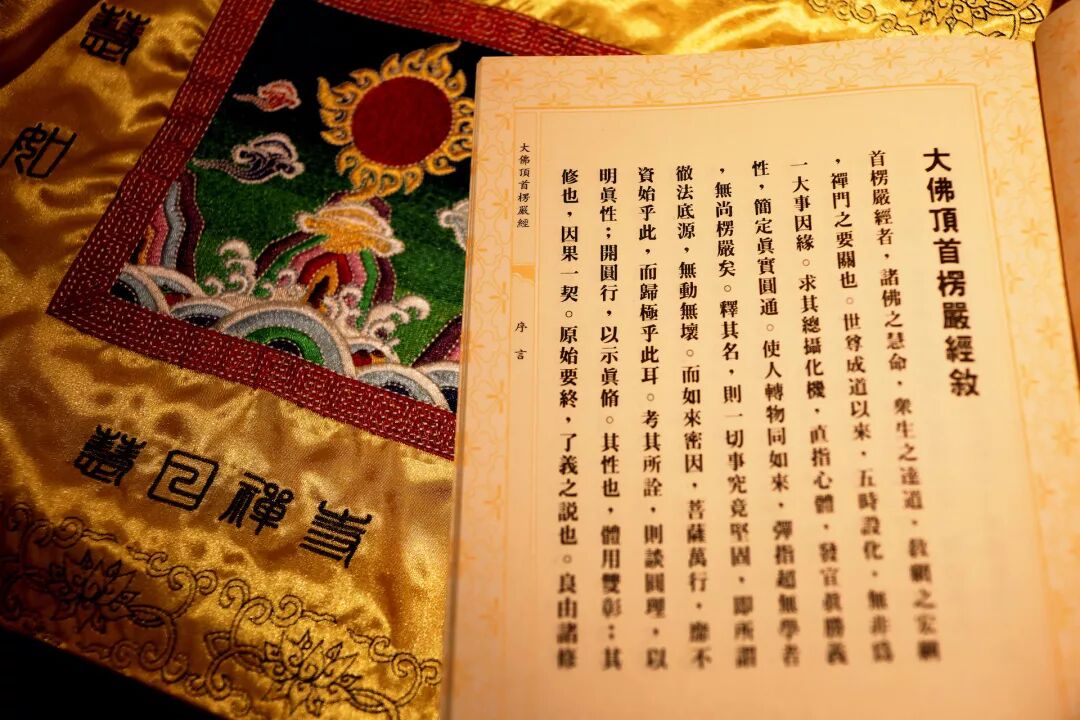 大佛頂首楞嚴經敘
首楞嚴經者，諸佛之慧命，衆生之達道，敎網之宏綱
，禪門之要關也。世尊成道以來，五時設化，無非爲
一大事因緣。求其總攝化機，直指心體，發宣眞勝義
性，簡定眞實圓通。使人轉物同如來，彈指超無學者
，無尚楞嚴矣。釋其名，則一切事究竟堅固，即所謂
徹法底源，無動無壞。而如來密因，菩薩萬行，靡不
資始乎此，而歸極乎此耳。考其所詮，則談圓理，以
明眞性；開圓行，以示眞脩。其性也，體用雙彰；其
修也，因果一契。原始要終，了義之說也。良由諸修
大佛頂首楞嚴經
序言
慧
慧 禪